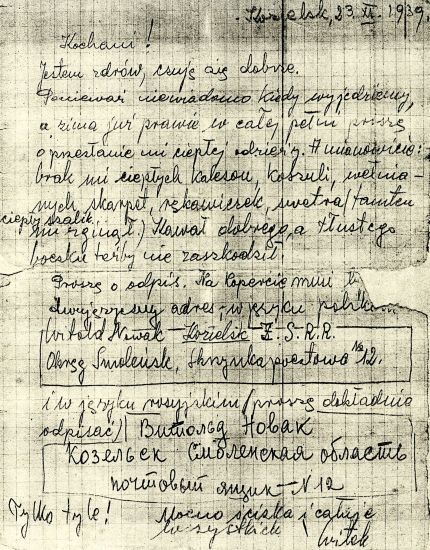 Kozielsk, 23. XI. 1939.
Kochani!
Jestem zdrów, czuję się dobrze.
Ponieważ niewiadomo kiedy wyjedziemy,
a zima już prawie w całej pełni proszę
o przesłanie mi ciepłej odzieży. A mianowicie:
brak mi ciepłych kaleson, koszuli, wełnia-
nych skarpet, rękawiczek, swetra (tamten
ciepły szalik
mi zginął) Kawał dobrego, a tłustego
boczku też by nie zaszkodził.
Proszę o odpis. Na kopercie musi
dwujęzyczny adres, w języku
Witold Nowak Kozielsk Z.S.R.R.
Okręg Smoleńsk, Skrzynka pocztowa № 12.
i w języku rosyjskim (proszę dokładnie
odpisać) Витольд Новак
Козельск Смоленская область
почтовый ящик N 12
Tylko tyle! Mocno ściska i całuje
wszystkich Witek